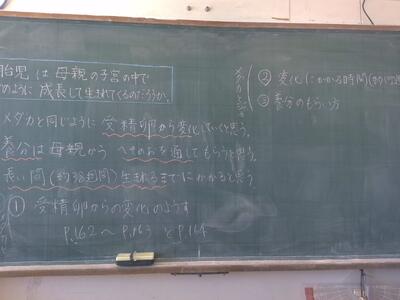 胎児は母親の子宮の中で
のように成長して生まれてくるのだろうか。
メダカと同じように受精卵から変化していくと思う。
養分は母親からへそのおを通してもらうと思う。
長い間(約38週間)生まれるまでにかかると思う
① 受精卵からの変化のようす
P.162〜P.163とP.164
② 変化にかかる時間
③ 養分のもらい方